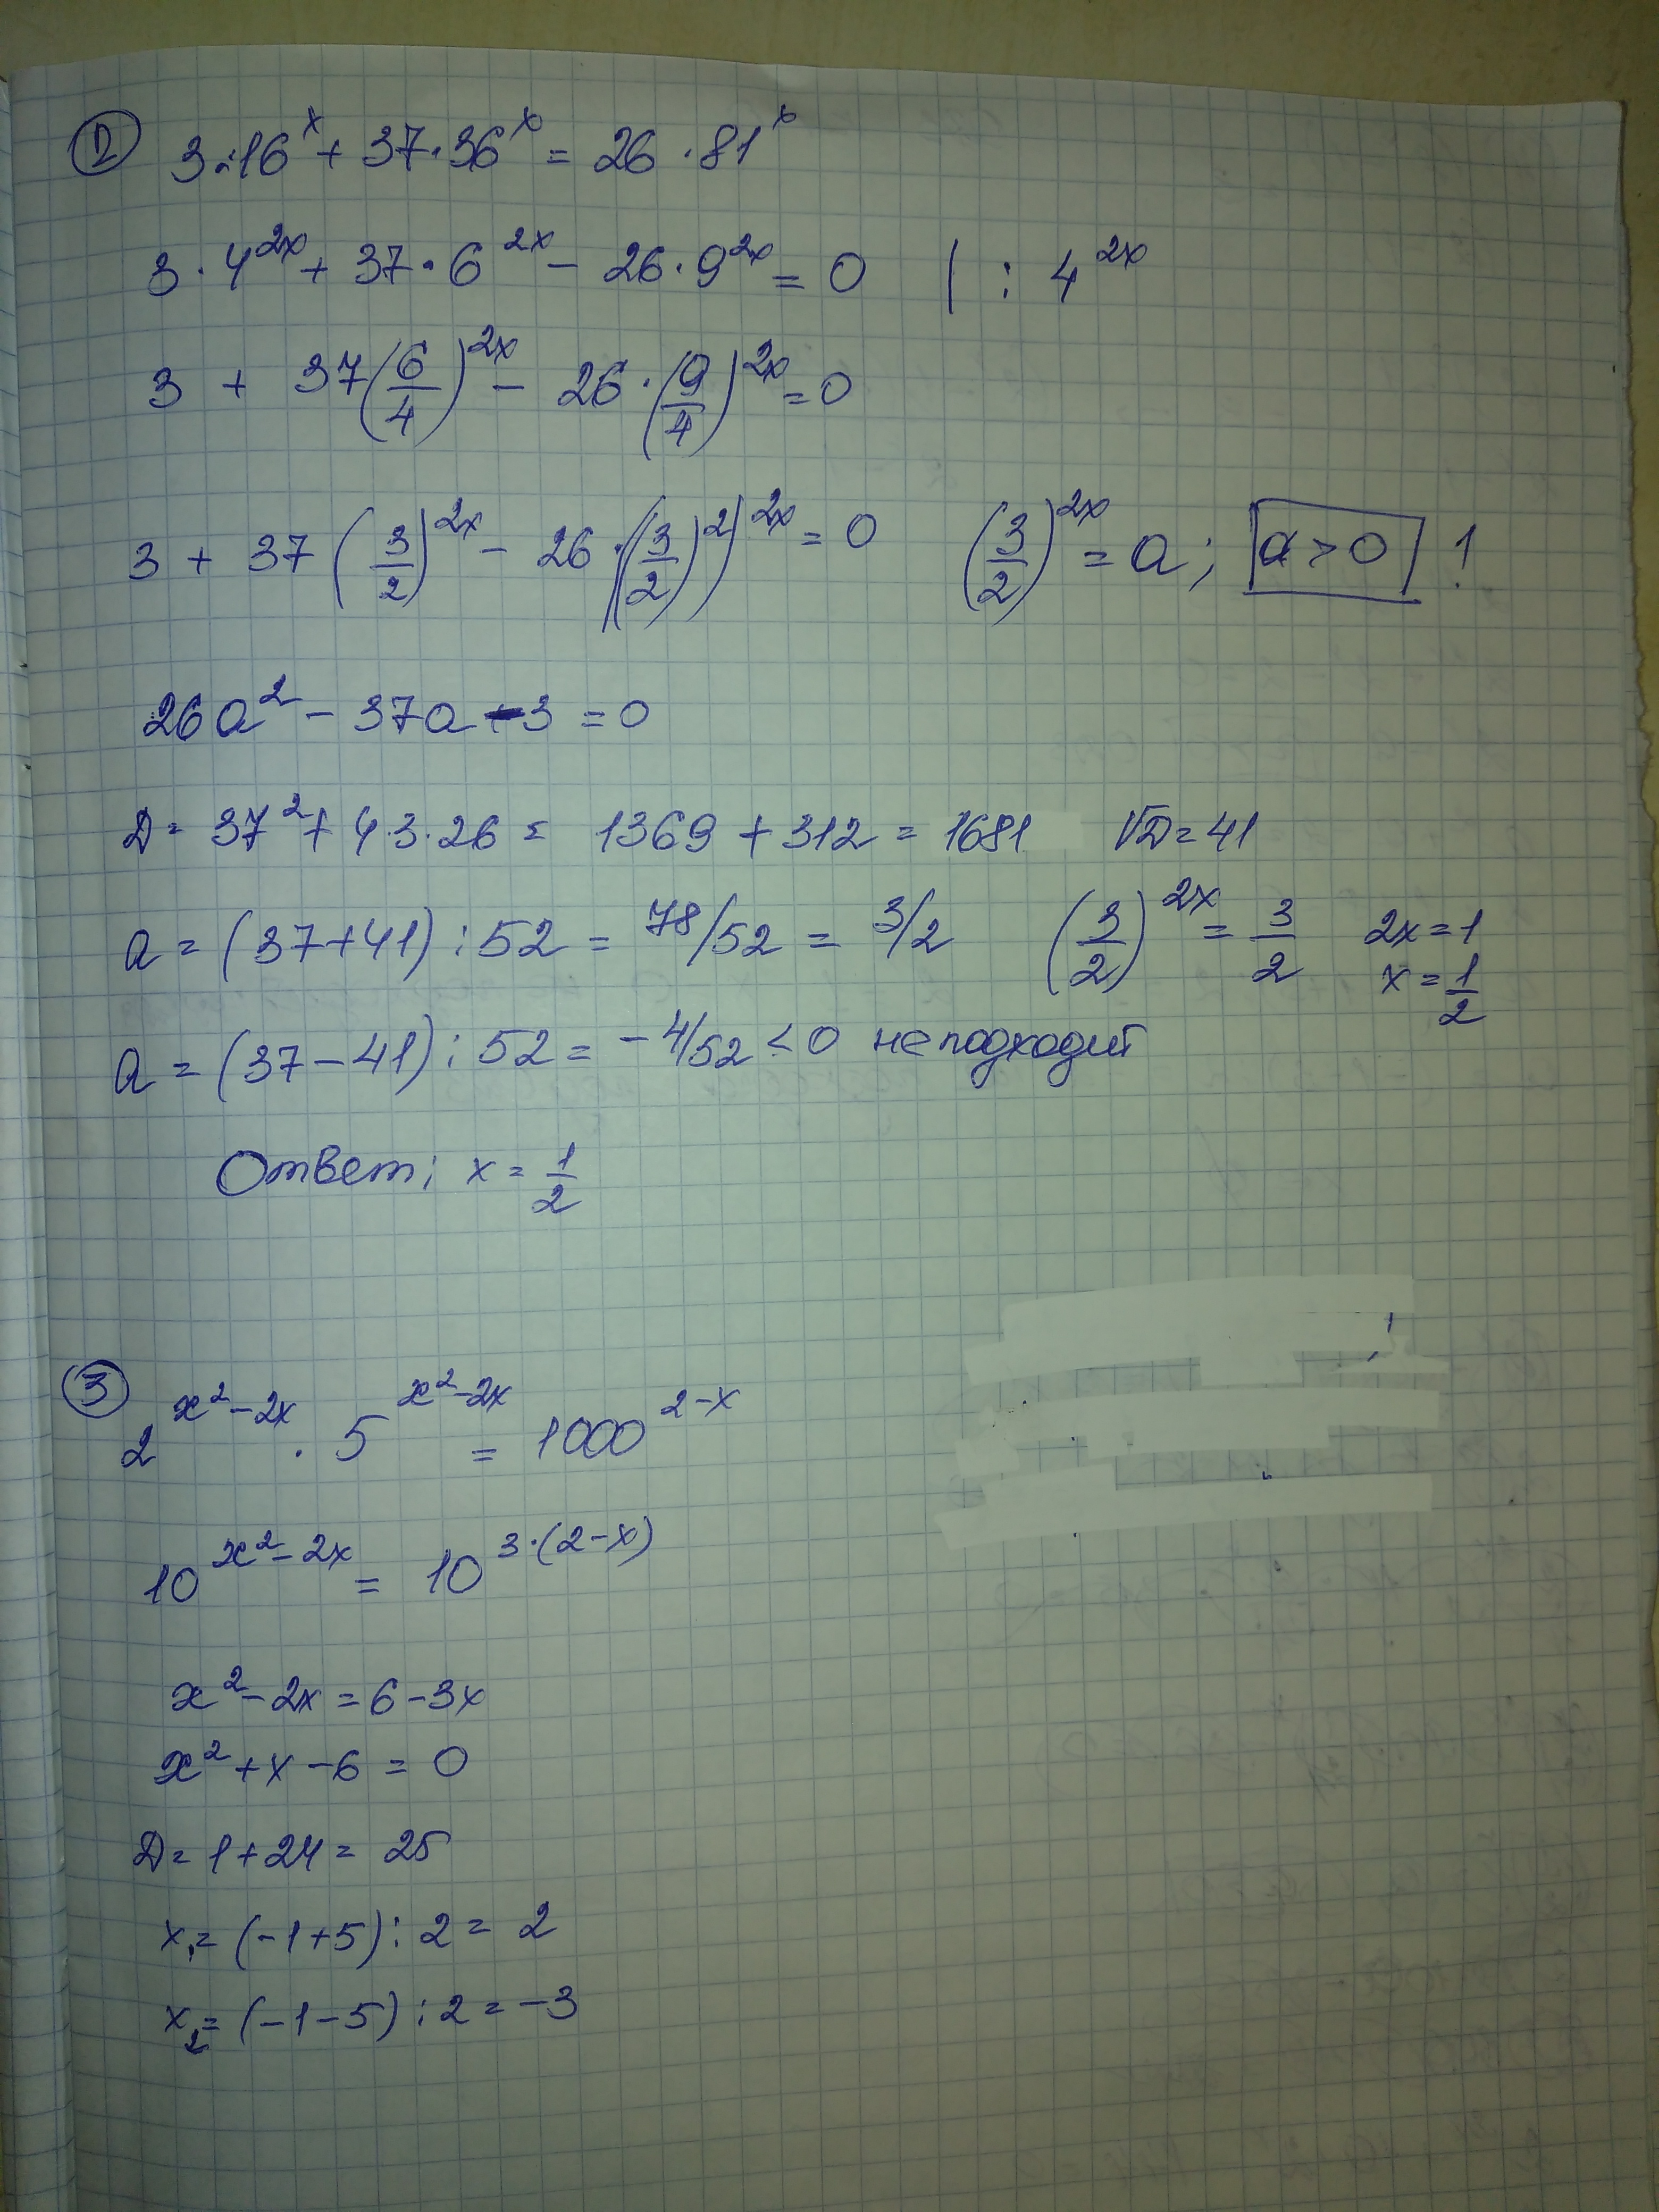 ② 3·16^x + 37·36^x = 26·81^x
3·4^2x + 37·6^2x − 26·9^2x = 0 | : 4^2x
3 + 37(6/4)^2x − 26·(9/4)^2x = 0
3 + 37(3/2)^2x − 26·((3/2)^2)^2x = 0 (3/2)^2x = a; a > 0 !
26a² − 37a − 3 = 0
D = 37² + 4·3·26 = 1369 + 312 = 1681 √D = 41
a = (37+41) : 52 = 78/52 = 3/2 (3/2)^2x = 3/2 2x = 1
x = 1/2
a = (37−41) : 52 = −4/52 < 0 не подходит
Ответ: x = 1/2
③ 2^(x²−2x) · 5^(x²−2x) = 1000^(2−x)
10^(x²−2x) = 10^(3·(2−x))
x² − 2x = 6 − 3x
x² + x − 6 = 0
D = 1 + 24 = 25
x₁ = (−1+5) : 2 = 2
x₂ = (−1−5) : 2 = −3